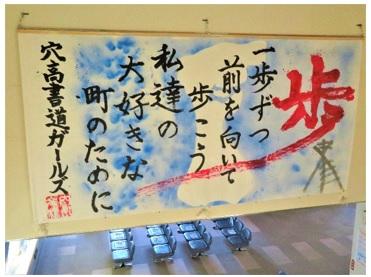 歩
一歩ずつ
前を向いて
歩こう
私達の
大好きな
町のために
穴高書道ガールズ